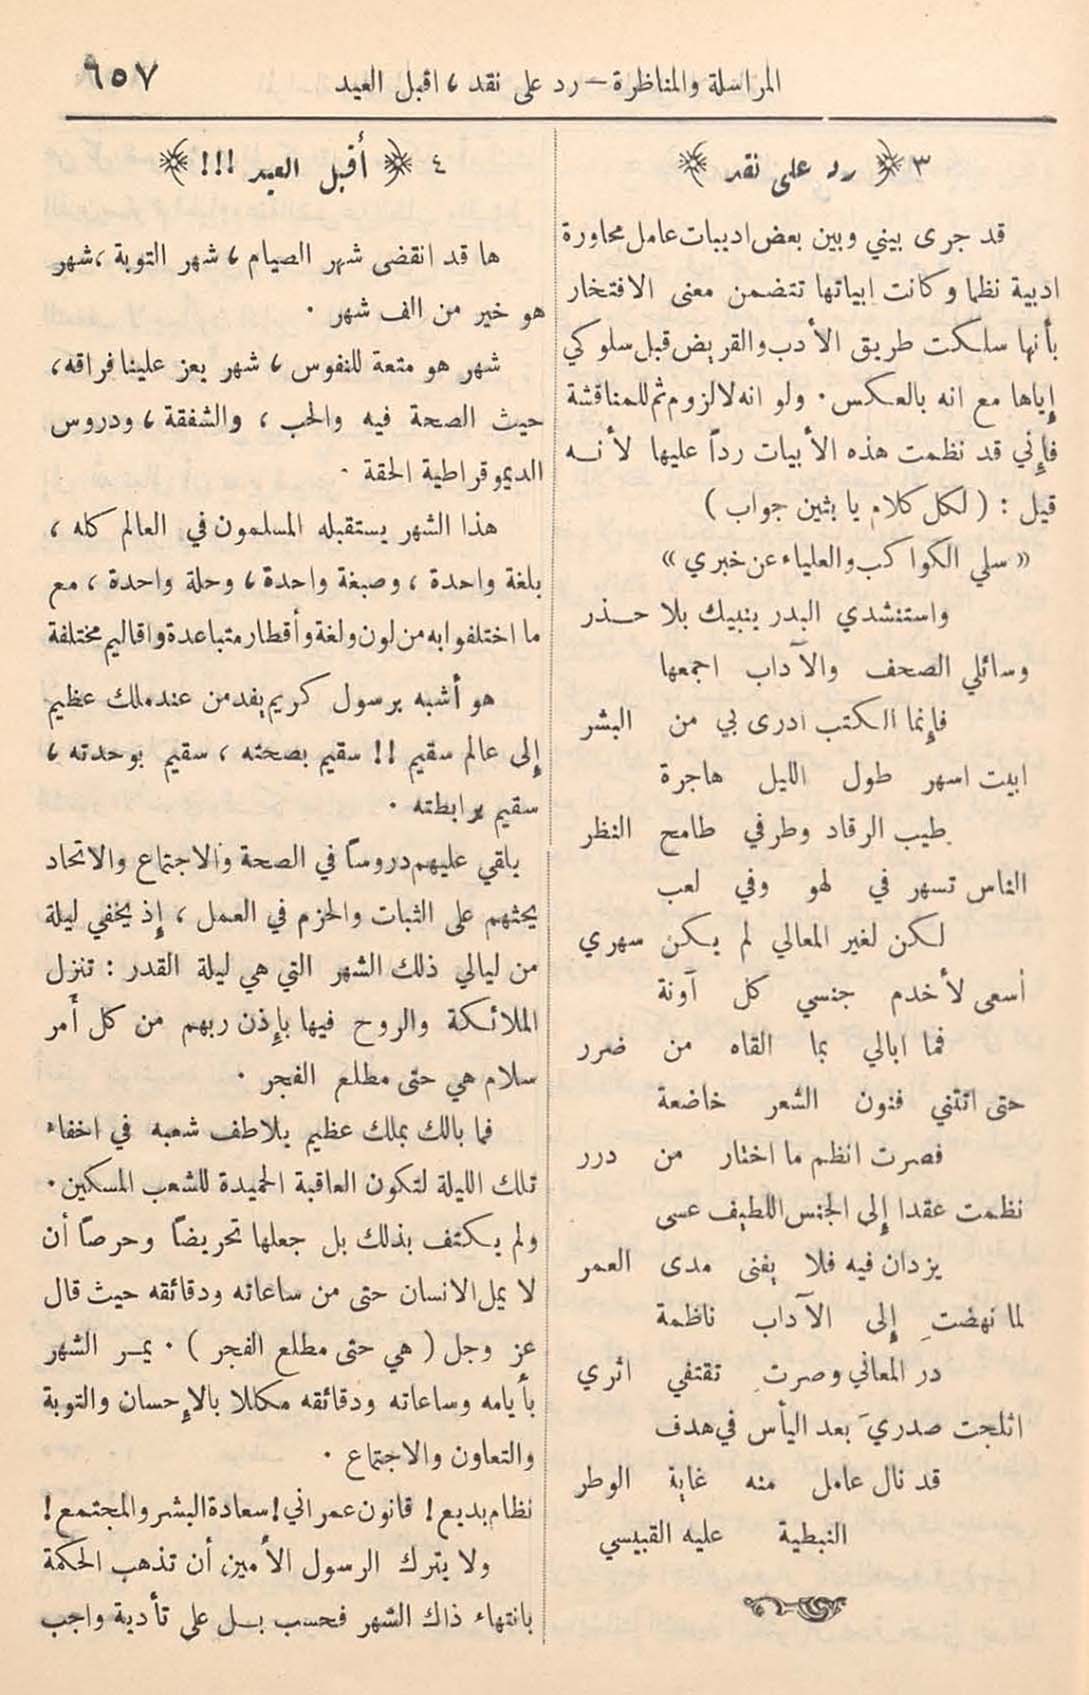 المراسلة والمناظرة — رد على نقد ، اقبل العيد ٦٥٧
٣ ﴿ رد على نقد ﴾
قد جرى بيني وبين بعض اديبات عامل محاورة
ادبية نظما وكانت ابياتها تتضمن معنى الافتخار
بأنها سلكت طريق الأدب والقريض قبل سلوكي
إياها مع انه بالعكس . ولو انه لالزوم ثم للمناقشة
فإني قد نظمت هذه الأبيات رداً عليها لأنه
قيل : ( لكل كلام يا بثين جواب )
« سلي الكواكب والعلياء عن خبري »
واستنشدي البدر ينبيك بلا حذر
وسائلي الصحف والآداب اجمعها
فإنما الكتب ادرى بي من البشر
ابيت اسهر طول الليل هاجرة
طيب الرقاد وطرفي طامح النظر
الناس تسهر في لهو وفي لعب
لكن لغير المعالي لم يكن سهري
أسعى لأخدم جنسي كل آونة
فما ابالي بما القاه من ضرر
حتى اتتني فنون الشعر خاضعة
فصرت انظم ما اختار من درر
نظمت عقدا إلى الجنس اللطيف عسى
يزدان فيه فلا يفنى مدى العمر
لما نهضتِ إلى الآداب ناظمة
در المعاني وصرتِ تقتفي اثري
اثلجت صدريَ بعد اليأس في هدف
قد نال عامل منه غاية الوطر
النبطية عليه القبيسي
٤ ﴿ أقبل العيد !!! ﴾
ها قد انقضى شهر الصيام ، شهر التوبة ، شهر
هو خير من الف شهر .
شهر هو متعة للنفوس ، شهر يعز علينا فراقه ،
حيث الصحة فيه والحب ، والشفقة ، ودروس
الديموقراطية الحقة .
هذا الشهر يستقبله المسلمون في العالم كله ،
بلغة واحدة ، وصبغة واحدة ، وحلة واحدة ، مع
ما اختلفوا به من لون ولغة وأقطار متباعدة واقاليم مختلفة
هو أشبه برسول كريم يفد من عند ملك عظيم
إلى عالم سقيم !! سقيم بصحته ، سقيم بوحدته ،
سقيم برابطته .
يلقي عليهم دروسا في الصحة والاجتماع والاتحاد
يحثهم على الثبات والحزم في العمل ، إذ يخفي ليلة
من ليالي ذلك الشهر التي هي ليلة القدر : تنزل
الملائكة والروح فيها بإذن ربهم من كل أمر
سلام هي حتى مطلع الفجر .
فما بالك بملك عظيم يلاطف شعبه في اخفاء
تلك الليلة لتكون العاقبة الحميدة للشعب المسكين .
ولم يكتف بذلك بل جعلها تحريضاً وحرصاً أن
لا يمل الانسان حتى من ساعاته ودقائقه حيث قال
عز وجل ( هي حتى مطلع الفجر ) . يمر الشهر
بأيامه وساعاته ودقائقه مكللا بالإحسان والتوبة
والتعاون والاجتماع .
نظام بديع ! قانون عمراني ! سعادة البشر والمجتمع !
ولا يترك الرسول الأمين أن تذهب الحكمة
بانتهاء ذاك الشهر فحسب بل على تأدية واجب